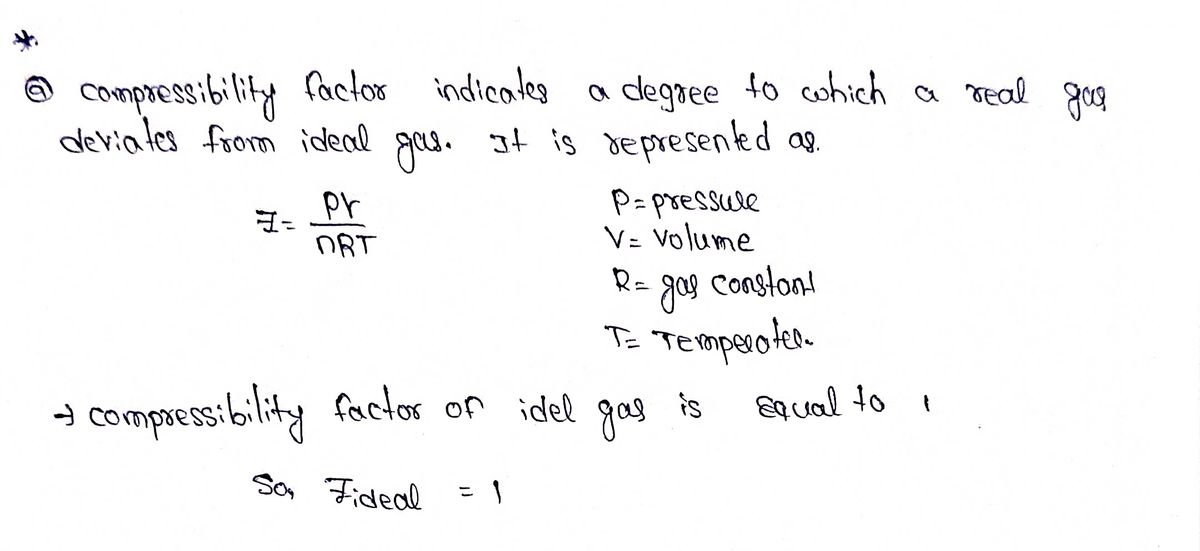 *.
ⓐ compressibility factor indicates a degree to which a real gas
deviates from ideal gas. It is represented as.
Z = PV / nRT
P = pressure
V = Volume
R = gas constant
T =
→ compressibility factor of idel gas is equal to 1
So, Zideal = 1